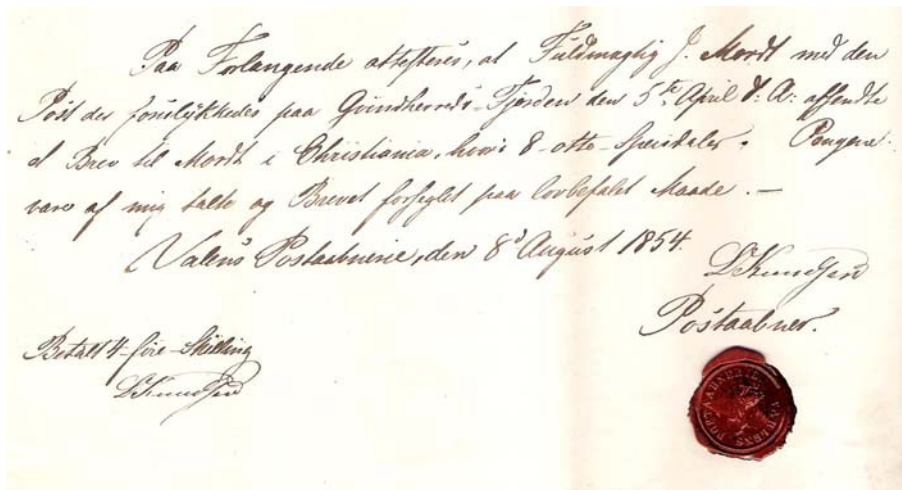 Paa Forlangende attesteres, at Fuldmægtig J. Mordt med den
Post der forulykkedes paa Qvindherreds-Fjorden den 5te April d: A: afsendte
et Brev til Mordt i Christiania, hvori 8-otte-Speisdaler. Pengene
vare af mig talte og Brevet forseglet paa lovbefalet Maade. —
Valens Postaabnerie, den 8d August 1854.
LKnudsen
Postaabner.
Betalt 4-fire-Skilling
LKnudsen
POSTAABNERIE